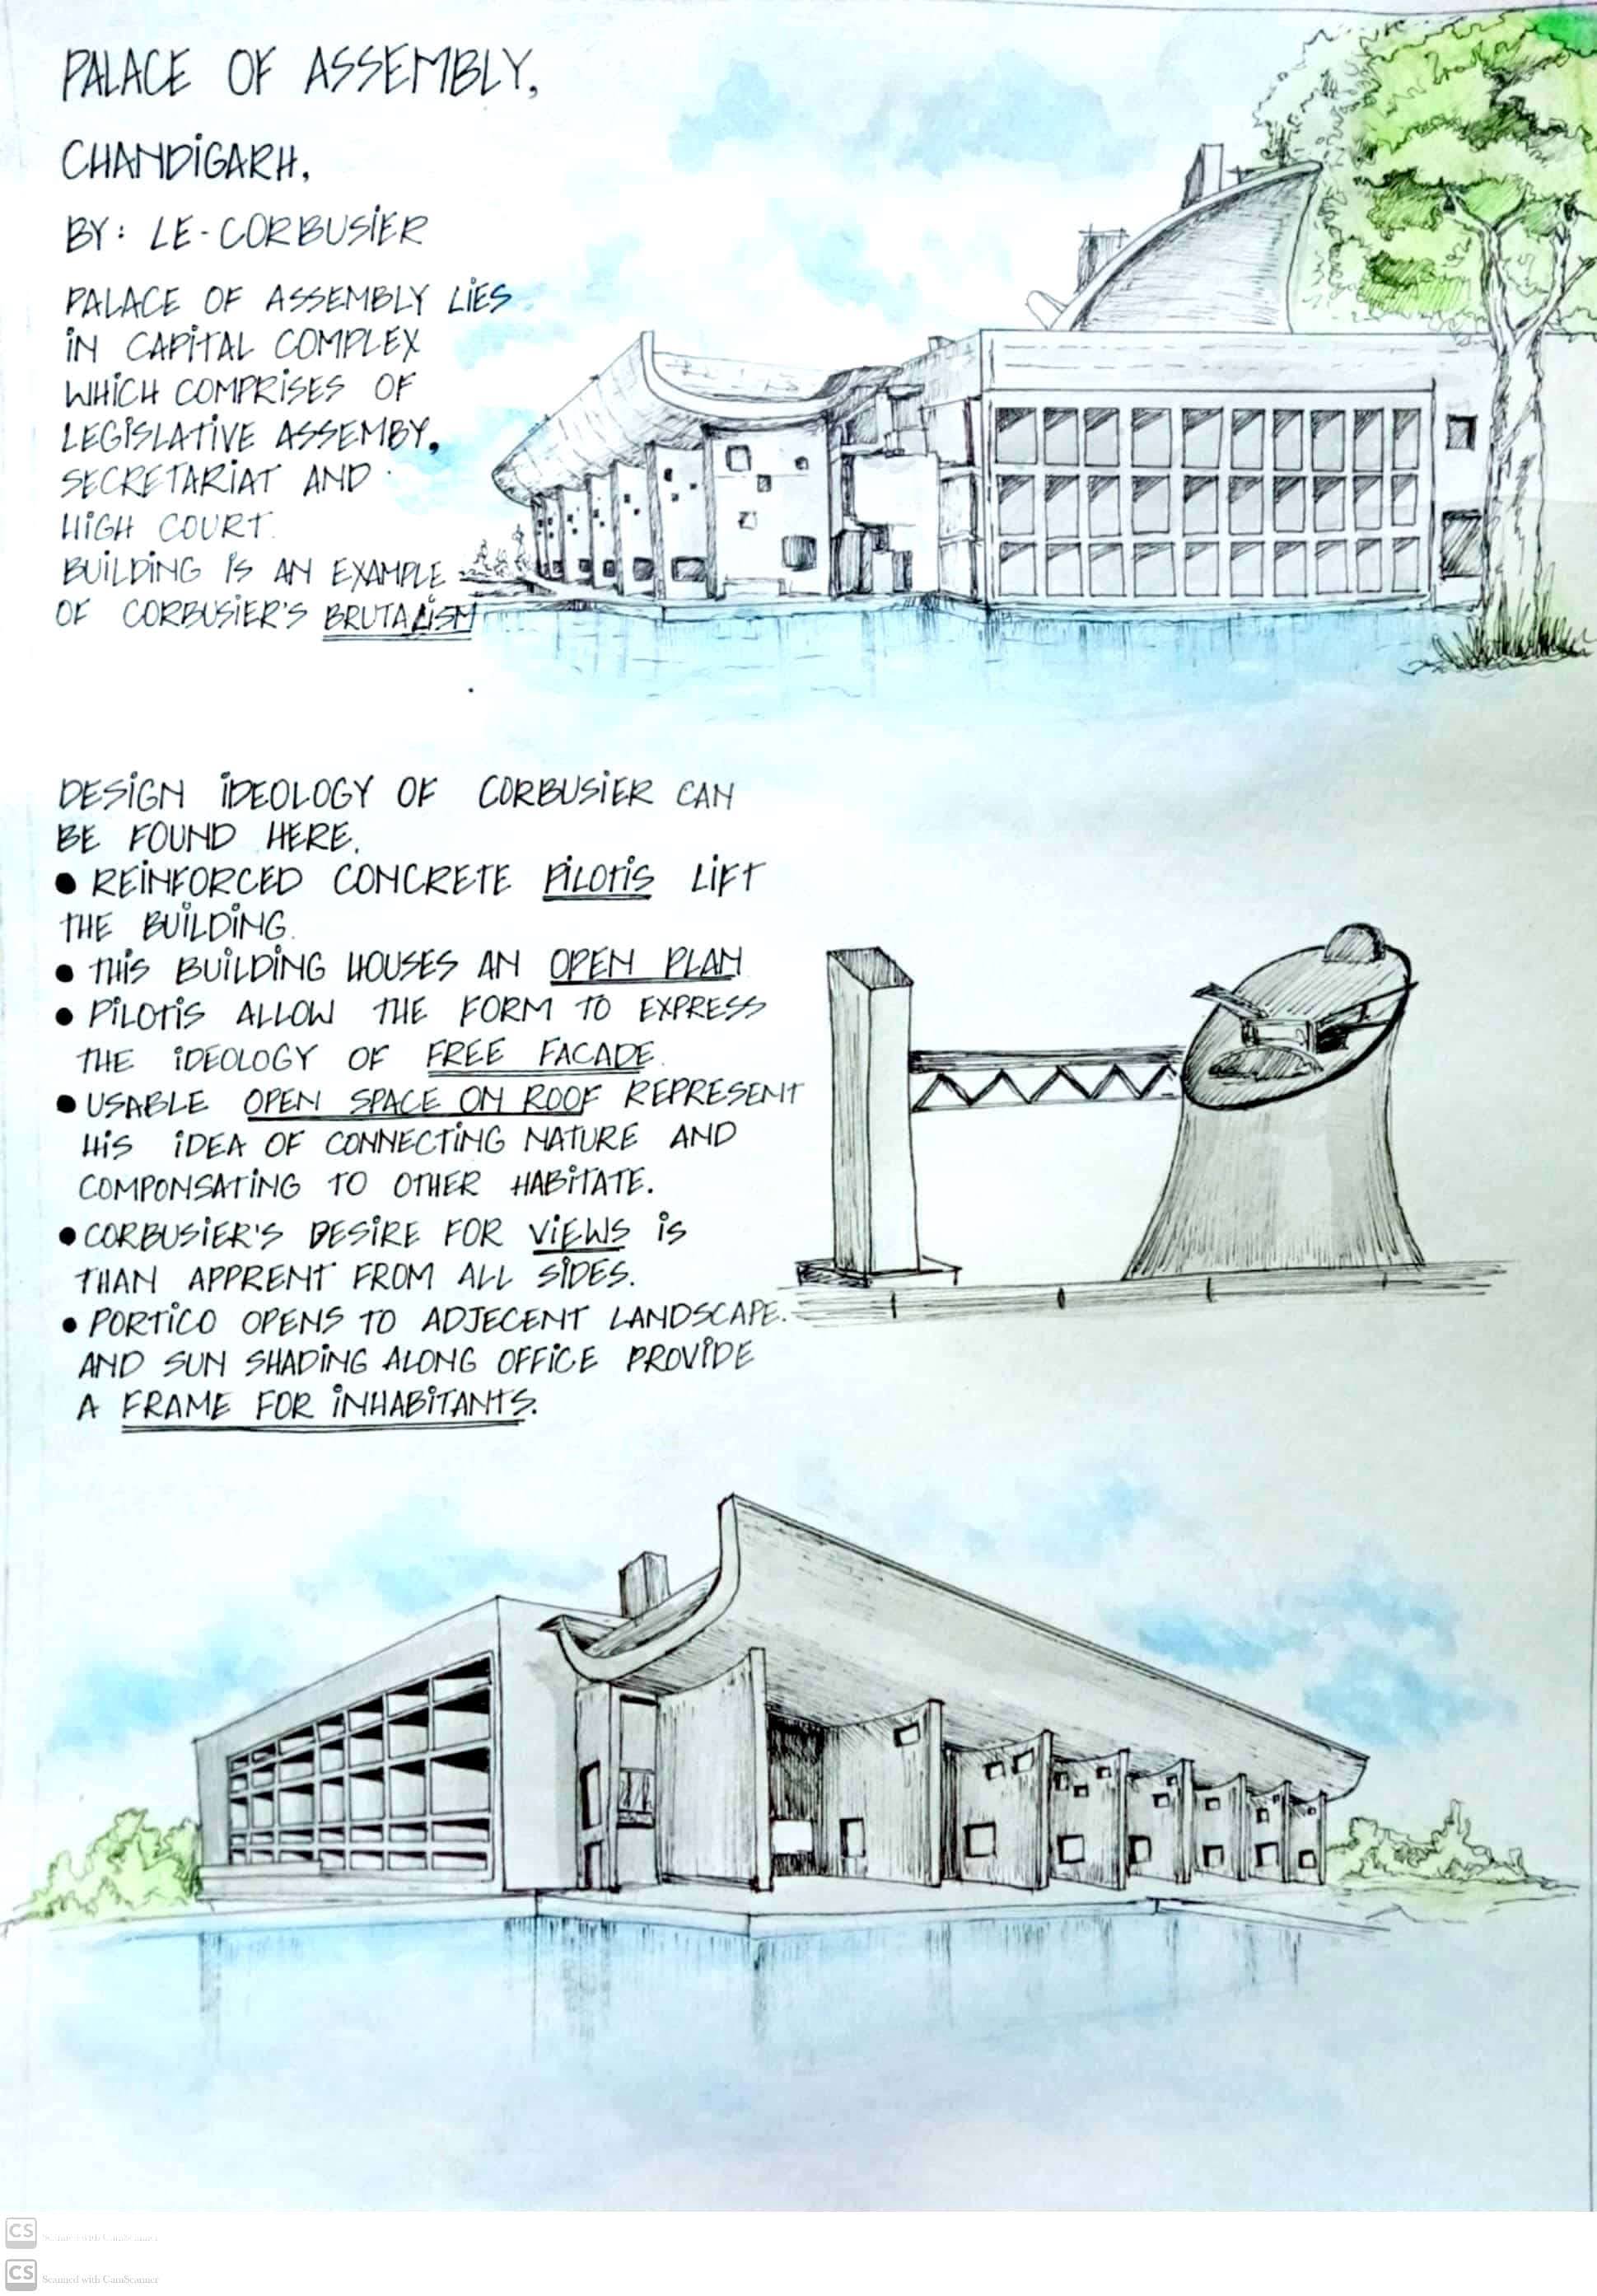 PALACE OF ASSEMBLY,
CHANDIGARH,
BY: LE-CORBUSIER
PALACE OF ASSEMBLY LIES
IN CAPITAL COMPLEX
WHICH COMPRISES OF
LEGISLATIVE ASSEMBY,
SECRETARIAT AND
HIGH COURT.
BUILDING IS AN EXAMPLE
OF CORBUSIER'S BRUTALISM
DESIGN IDEOLOGY OF CORBUSIER CAN
BE FOUND HERE.
• REINFORCED CONCRETE PILOTIS LIFT
THE BUILDING.
• THIS BUILDING HOUSES AN OPEN PLAN
• PILOTIS ALLOW THE FORM TO EXPRESS
THE IDEOLOGY OF FREE FACADE.
• USABLE OPEN SPACE ON ROOF REPRESENT
HIS IDEA OF CONNECTING NATURE AND
COMPONSATING TO OTHER HABITATE.
• CORBUSIER'S DESIRE FOR VIEWS IS
THAN APPRENT FROM ALL SIDES.
• PORTICO OPENS TO ADJECENT LANDSCAPE.
AND SUN SHADING ALONG OFFICE PROVIDE
A FRAME FOR INHABITANTS.
CS Scanned with CamScanner
CS Scanned with CamScanner